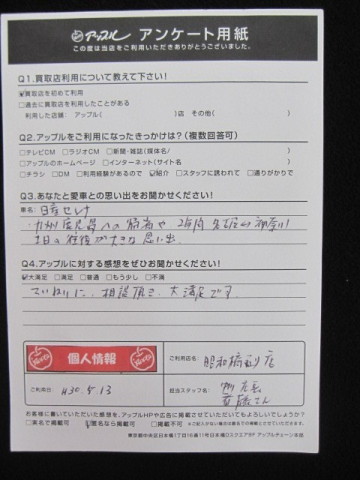 アップル アンケート用紙
この度は当店をご利用いただきありがとうございました。
Q1.買取店利用について教えて下さい!
☑買取店を初めて利用
□過去に買取店を利用したことがある
利用した店舗: アップル( )店 その他( )
Q2.アップルをご利用になったきっかけは?(複数回答可)
□テレビCM □ラジオCM □新聞・雑誌(媒体名/ )
□アップルのホームページ □インターネット(サイト名 )
□チラシ □DM □利用経験があるので ☑紹介 □スタッフに誘われて □通りがかりで
Q3.あなたと愛車との思い出をお聞かせください!
車名: 日産セレナ
九州 鹿児島への帰省や 2年間 名古屋⇔神奈川
の往復が大きな思い出
Q4.アップルに対する感想をぜひお聞かせください!
☑大満足 □満足 □普通 □もう少し □不満
ていねいに、相談頂き、大満足です。
個人情報
ご利用店名: 昭和橋通り店
ご利用日: H30.5.13
担当スタッフ名:
さん
お客様に書いていただいた感想を、アップルHPや広告に掲載させていただいてもよろしいでしょうか?
□実名で掲載可 ☑匿名なら掲載可 □掲載不可
東京都中央区日本橋1丁目16番11号日本橋DスクエアB7F アップルチェーン本部